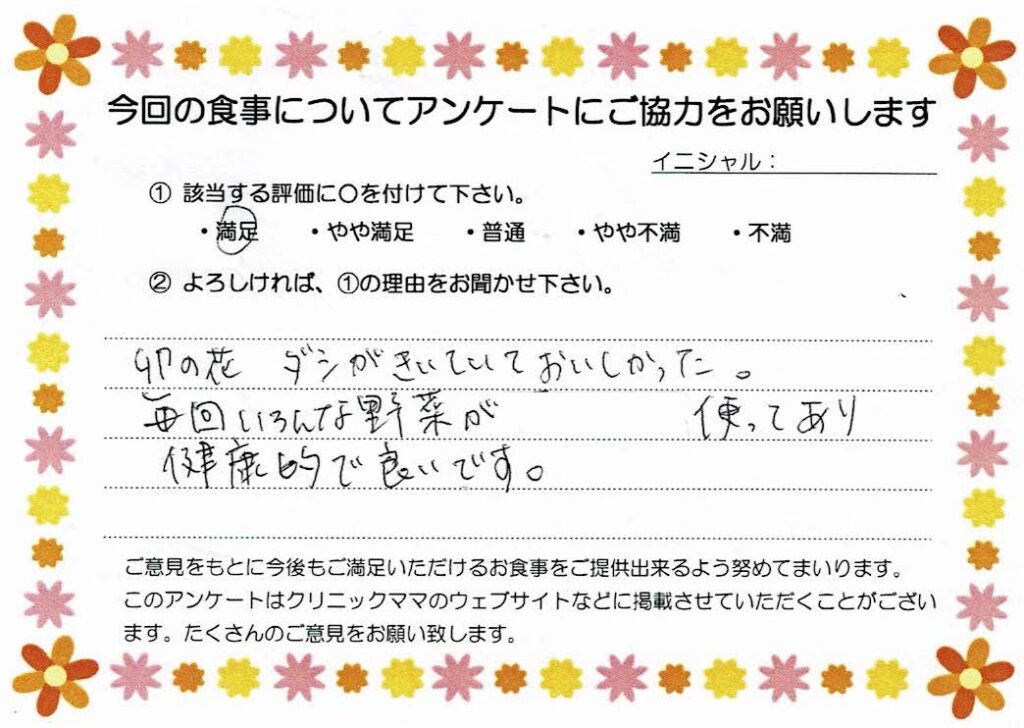 今回の食事についてアンケートにご協力をお願いします
イニシャル：
① 該当する評価に〇を付けて下さい。
・満足 ・やや満足 ・普通 ・やや不満 ・不満
② よろしければ、①の理由をお聞かせ下さい。
卯の花 ダシがきいていておいしかった。
毎回いろんな野菜が 使ってあり
健康的で良いです。
ご意見をもとに今後もご満足いただけるお食事をご提供出来るよう努めてまいります。
このアンケートはクリニックママのウェブサイトなどに掲載させていただくことがござい
ます。たくさんのご意見をお願い致します。